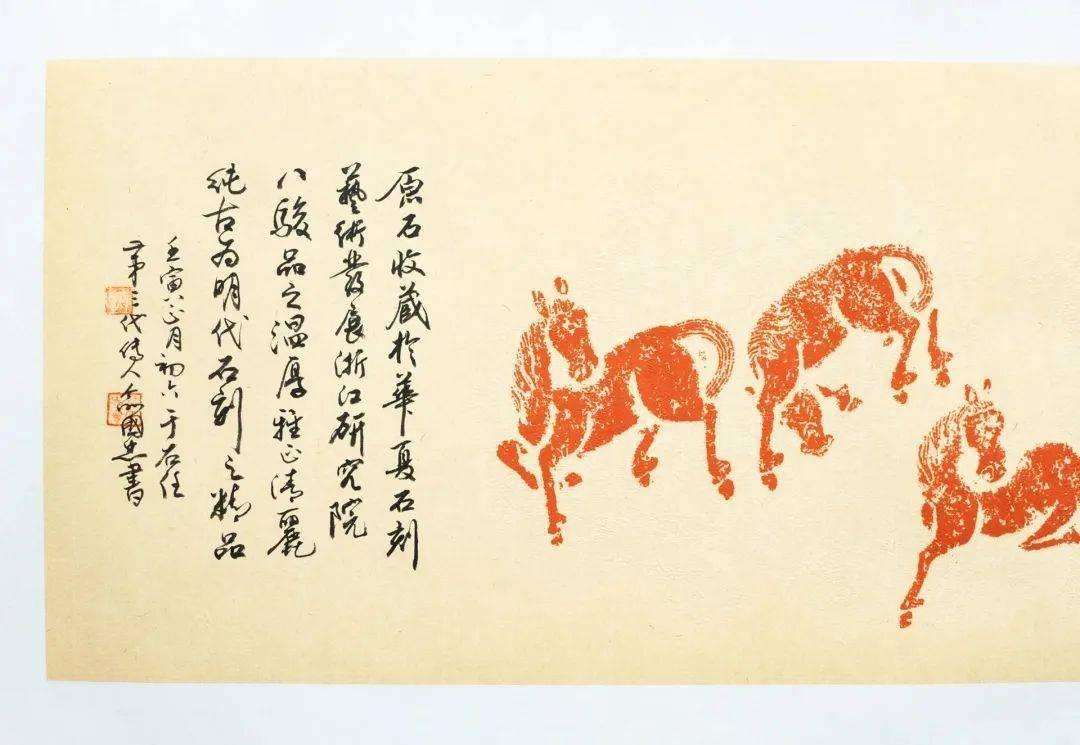 原石收藏於華夏石刻
藝術發展浙江研究院
八駿品之温厚雅正清麗
純古为明代石刻之精品
壬寅正月初六于石住
第三代傳人 國忠書